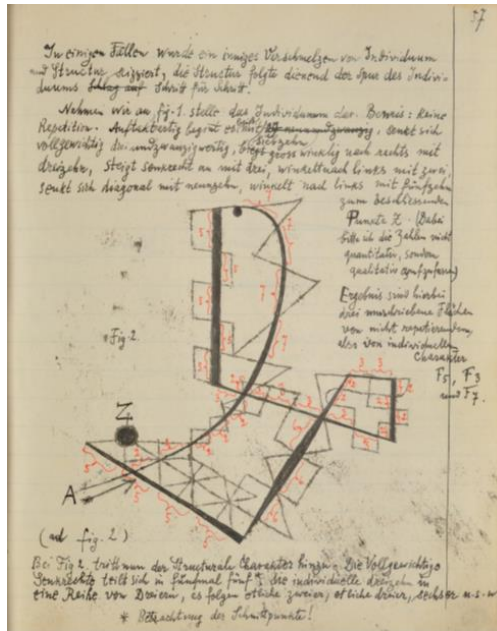 37
In einigen Fällen wurde ein inniges Verschmelzen von Individuum
und Structur skizziert, die Structur folgte dienend der Spur des Indivi-
duums Schritt für Schritt.
Nehmen wir an, fig. 1. stelle das Individuum dar. Beweis: keine
Repetition. Auftaktartig beginnt es mit siebzehn, senkt sich
vollgewichtig dreiundzwanzigwertig, biegt gross winklig nach rechts mit
dreizehn, steigt senkrecht an mit drei, winkelt nach links mit zwei,
senkt sich diagonal mit neunzehn, winkelt nach links mit fünfzehn
zum beschliessenden
Punkte Z. (Dabei
bitte ich die Zahlen nicht
quantitativ, sondern
qualitativ aufzufassen)
Ergebnis sind hierbei
drei umschriebene Flächen
von nicht repetierendem,
also von individuellem
Charakter
F5, F3
und F7.
Fig 2.
Z
A
(auf fig. 2)
Bei Fig 2. tritt nun der Structurale Charakter hinzu. Die Vollgewichtige
Senkrechte teilt sich in fünfmal fünf, die individuelle dreizehn in
eine Reihe von Dreiern, es folgen etliche zweier, etliche dreier, sechser u.s.w
* Betrachtung der Schnittpunkte!